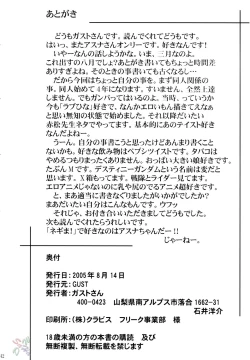 あとがき
どうもガストさんです。読んでくれてどうもです。
はいっ、またアスナさんオンリーです。好きなんです！
いやーなんの話しようかな。いま、三月なのよ。
これ出すの八月でしょ？あとがき書いてもちょっと時間差
ありすぎよね。そのときの事書いても古くなるし…
だから今回はちょっと自分の事を。まず同人関係の
事。同人始めて４年になります。すいません。全然上達
しません。でもガンバってはいるのよ。当時、っていうか
今も「ラブひな」好きで、なんかエロいもん描きてえなあ
と思い無知の状態で始めました。それ以降だいたい
赤松先生ネタでやってます。基本的にあのテイスト好き
なんだよねー。
うーん。自分の事書こうと思ったけどあんまり書くこと
ないかも。好きな飲み物はペプシツイストです。タバコは
やめるつもりまったくありません。おっぱい大きい娘好きです。
たぶんＭです。デスティニーガンダムという名前は変だと
思います。Ｘ箱もってます。戦隊とライダー見てます。
エロアニメじゃないのに乳や尻のでるアニメ超好きです。
と、まあ適当に書きなぐりましたがいかがでしたか？
まあだいたい自分はこんなもんです。ウフッ
それじゃ、お付き合いいただきましてどうもでした。
次も読んでくれたらうれしいです。
「ネギま！」で好きなのはアスナちゃんだー！！
じゃーねー。
奥付
発行日：2005年8月14日
発行元：GUST
発行者：ガストさん
400-0423　山梨県南アルプス市落合 1662-31
石井洋介
印刷所：（株）クラビス　フリーク事業部　様
18歳未満の方の本書の購読　及び
無断複製、無断転載を禁じます